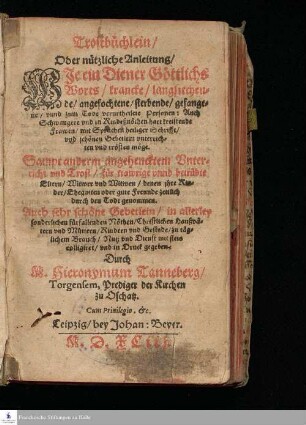 Trostbüchlein/
Oder nützliche Anleitung/
WIe ein Diener Göttlichs
Worts/ krancke/ langliegen-
de/ angefochtene/ sterbende/ gefange-
ne/ vnnd zum Tode verurtheilete Personen: Auch
Schwangere vnd in Kindsnöthen hart kreistende
Frawen/ mit Sprüchen heiliger Schrifft/
vnd schönen Gebeten vnterrich-
ten vnd trösten möge.
Sampt anderm angehencktem Vnter-
richt vnd Trost/ für trawrige vnnd betrübte
Eltern/ Witwer vnd Witwen/ denen jhre Kin-
der/ Ehegatten oder gute Freunde zeitlich
durch den Todt genommen.
Auch sehr schöne Gebetlein/ in allerley
sonderlichen fürfallenden Nöthen/ Christlichen Hausvä-
tern vnd Müttern/ Kindern vnd Gesinde/ zu täg-
lichem Brauch/ Nutz vnd Dienst
vnd in Druck gegeben.
Durch
M. Hieronymum Tanneberg/
Torgensem, Prediger der Kirchen
zu Oschatz.
Cum Privilegio, &c.
Leipzig/ bey Johan: Beyer.
M. D. XCIII.
Franckesche Stiftungen zu Halle